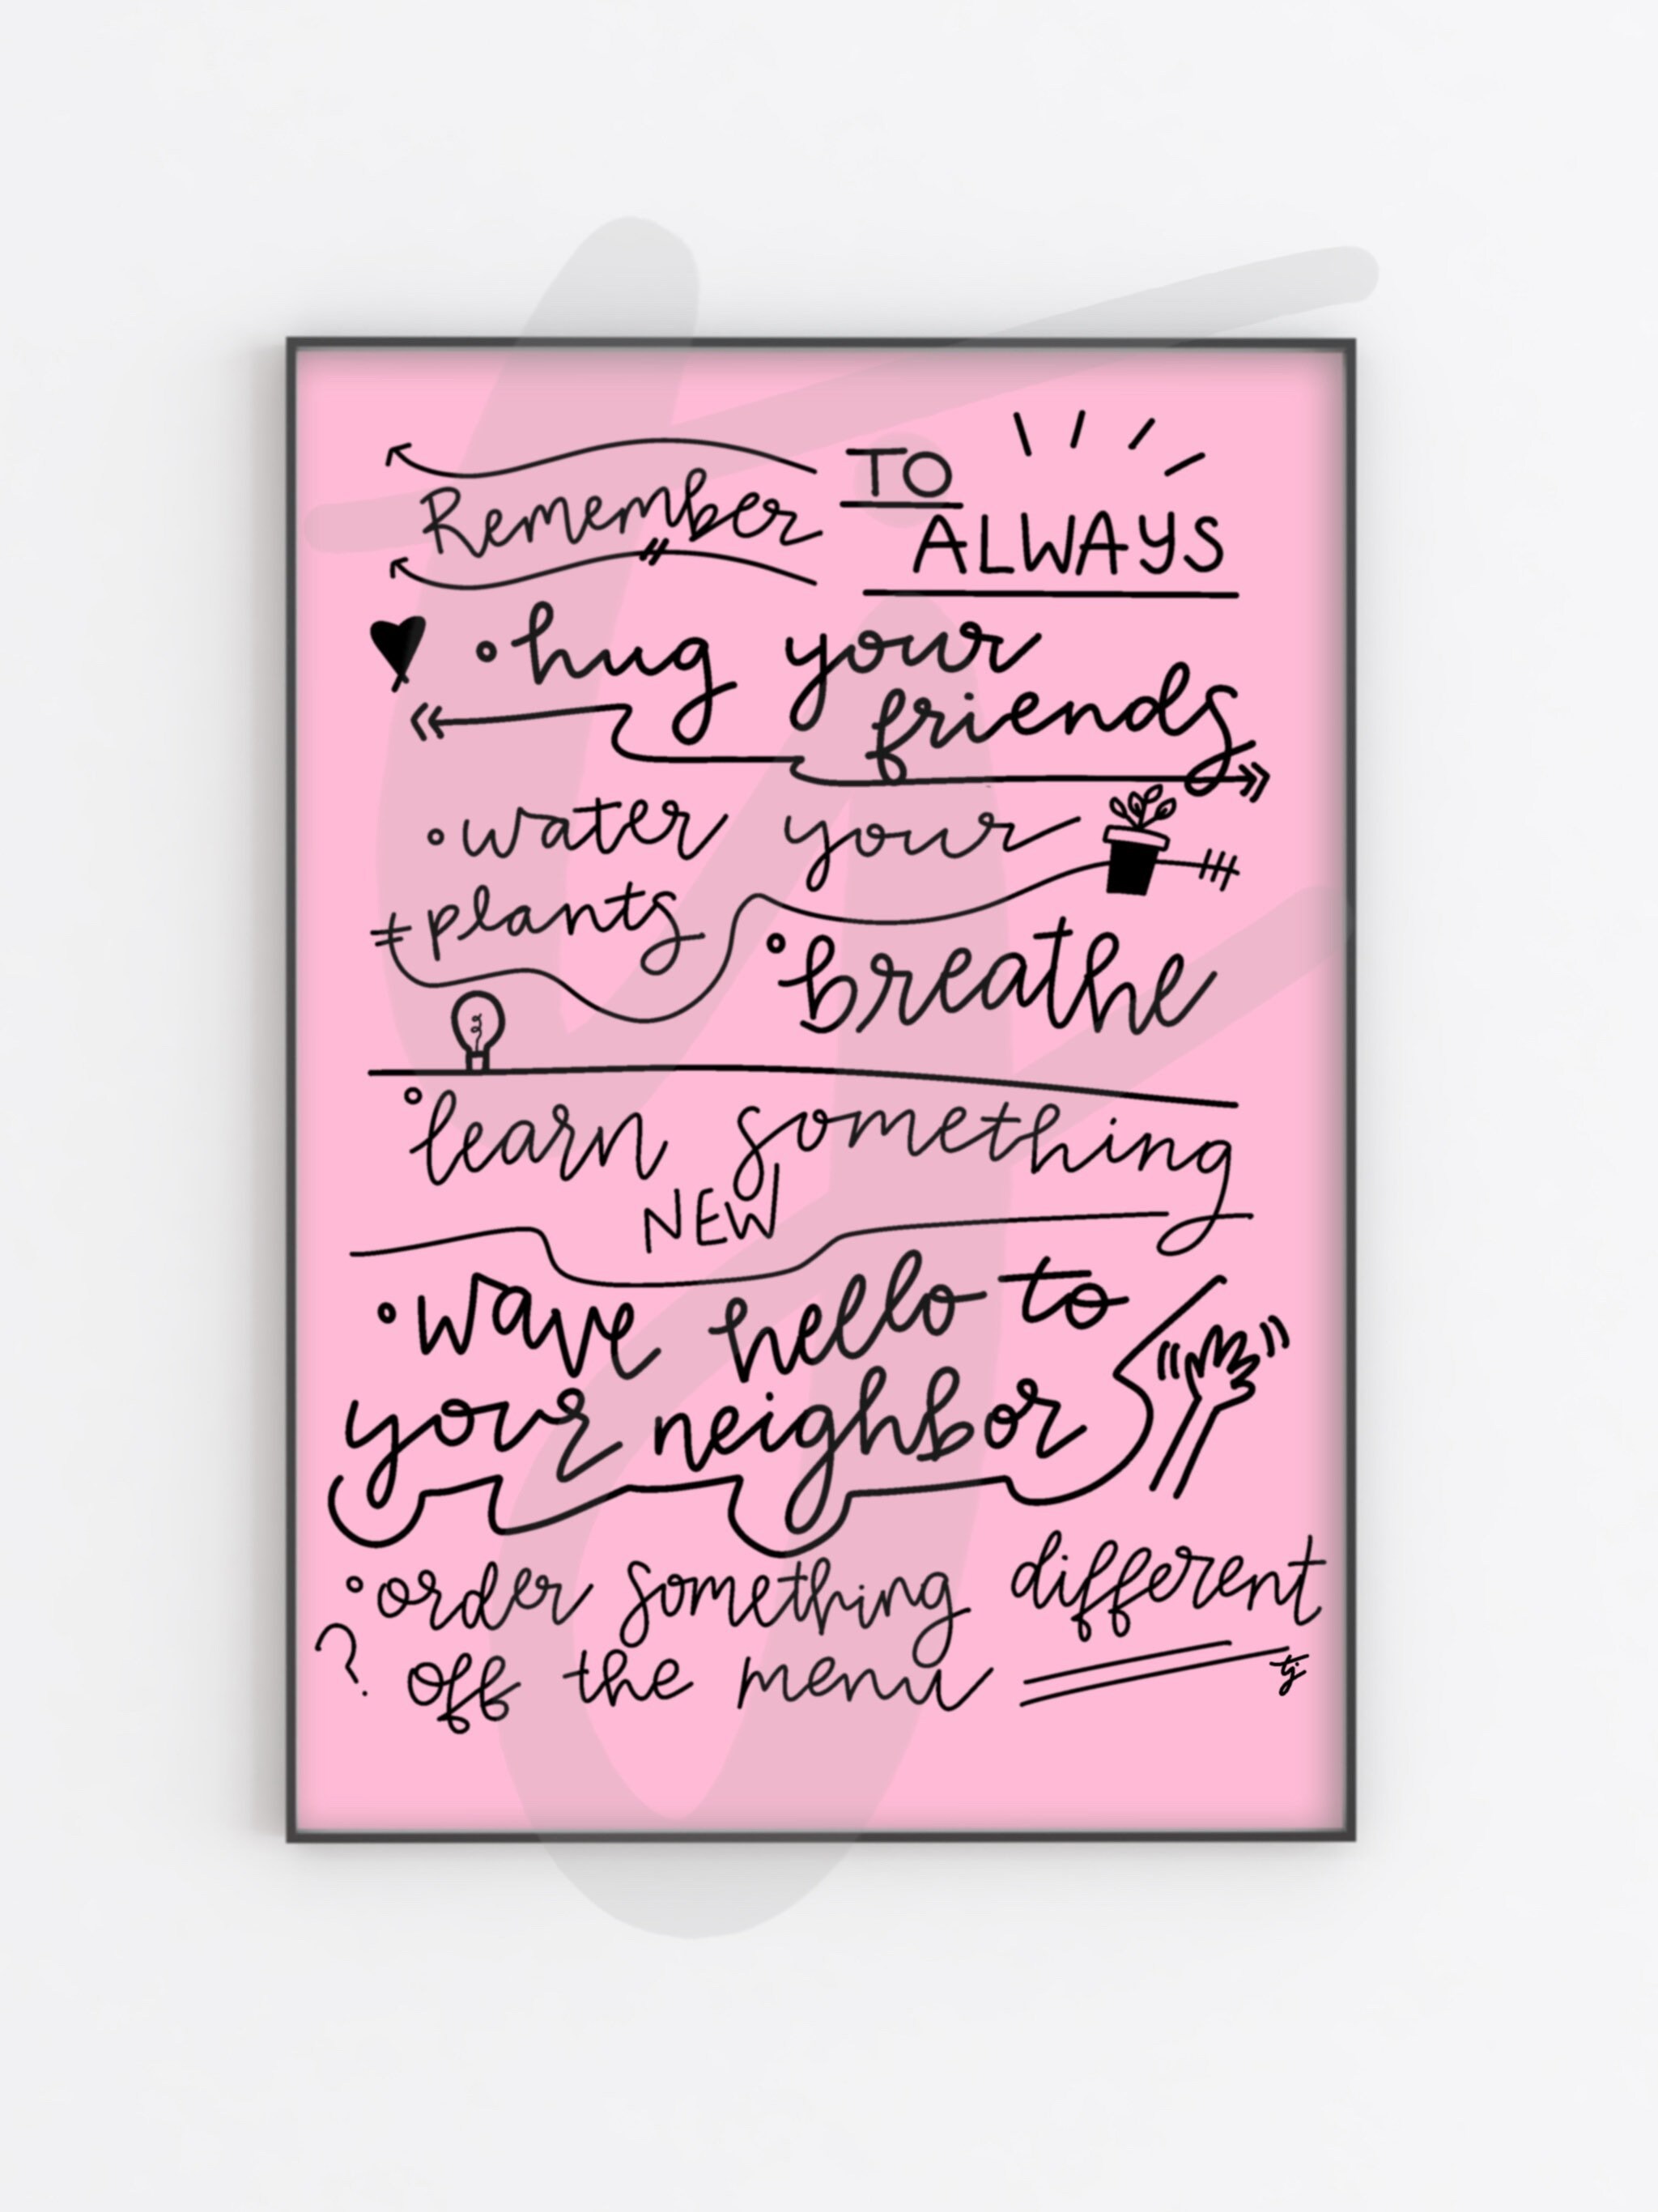 Remember TO
ALWAYS
• hug your
friends
• water your
plants
• breathe
• learn something
NEW
• wave hello to
your neighbor
• order something different
? off the menu
tj